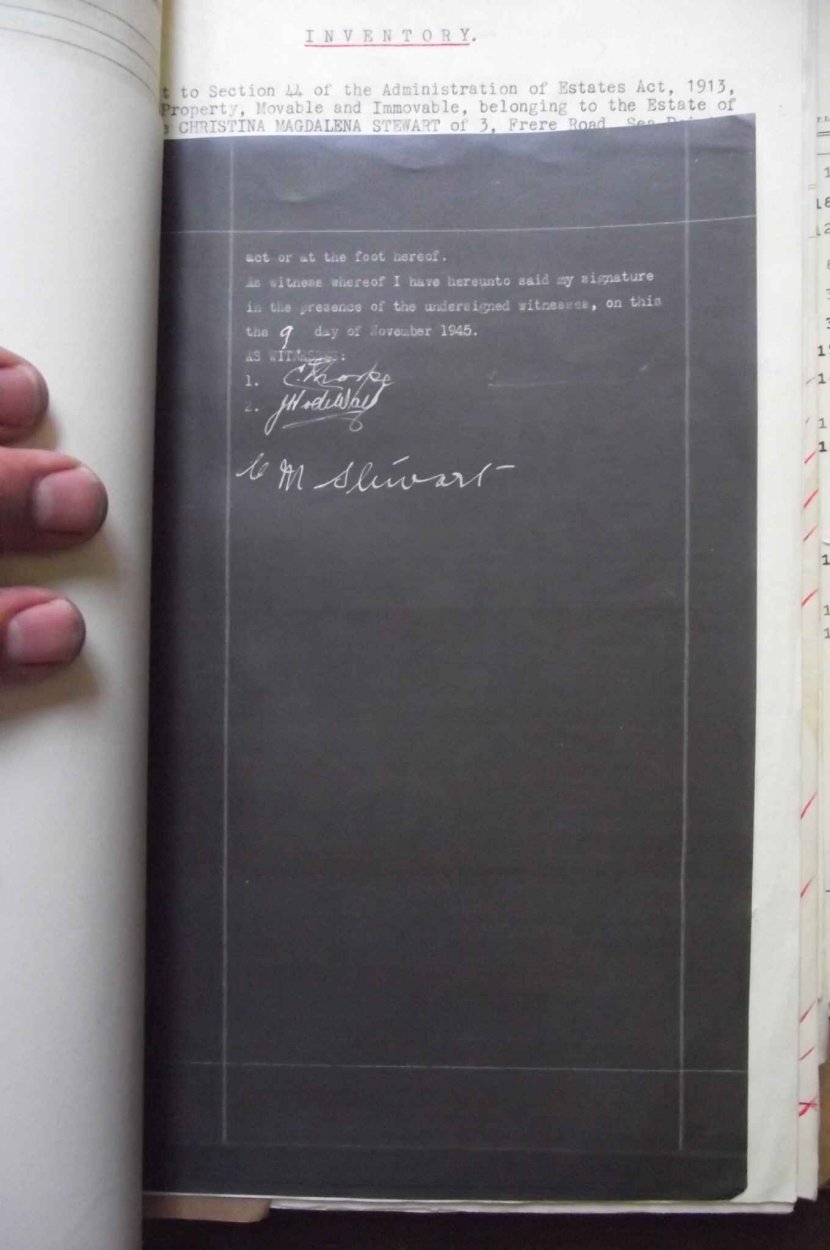 INVENTORY.
t to Section 44 of the Administration of Estates Act, 1913,
Property, Movable and Immovable, belonging to the Estate of
CHRISTINA MAGDALENA STEWART of 3, Frere Road, Sea
act or at the foot hereof.
As witness whereof I have hereunto said my signature
in the presence of the undersigned witnesses, on this
the 9 day of November 1945.
AS WITNESSES:
1. C Thorpe
2.
C M Stewart